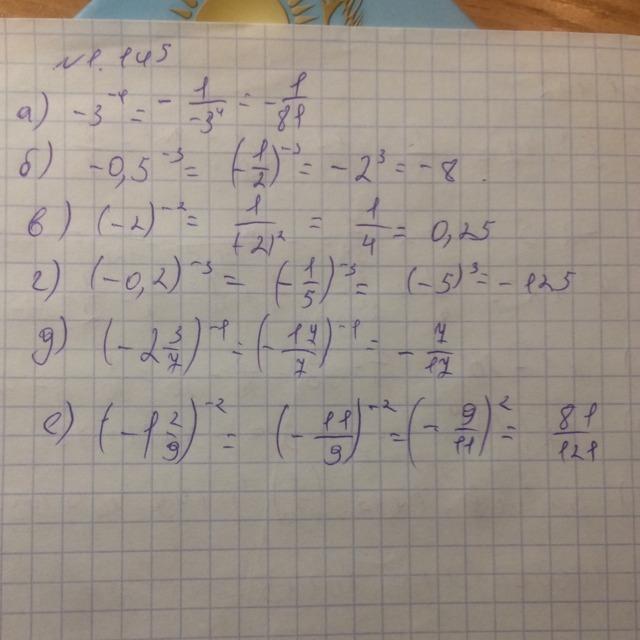 №1.145
а) -3^-4 = - 1/-3^4 = - 1/81
б) -0,5^-3 = (-1/2)^-3 = -2^3 = -8
в) (-2)^-2 = 1/(-2)^2 = 1/4 = 0,25
г) (-0,2)^-3 = (-1/5)^-3 = (-5)^3 = -125
д) (-2 3/7)^-1 = (-17/7)^-1 = - 7/17
е) (-1 2/9)^-2 = (-11/9)^-2 = (-9/11)^2 = 81/121